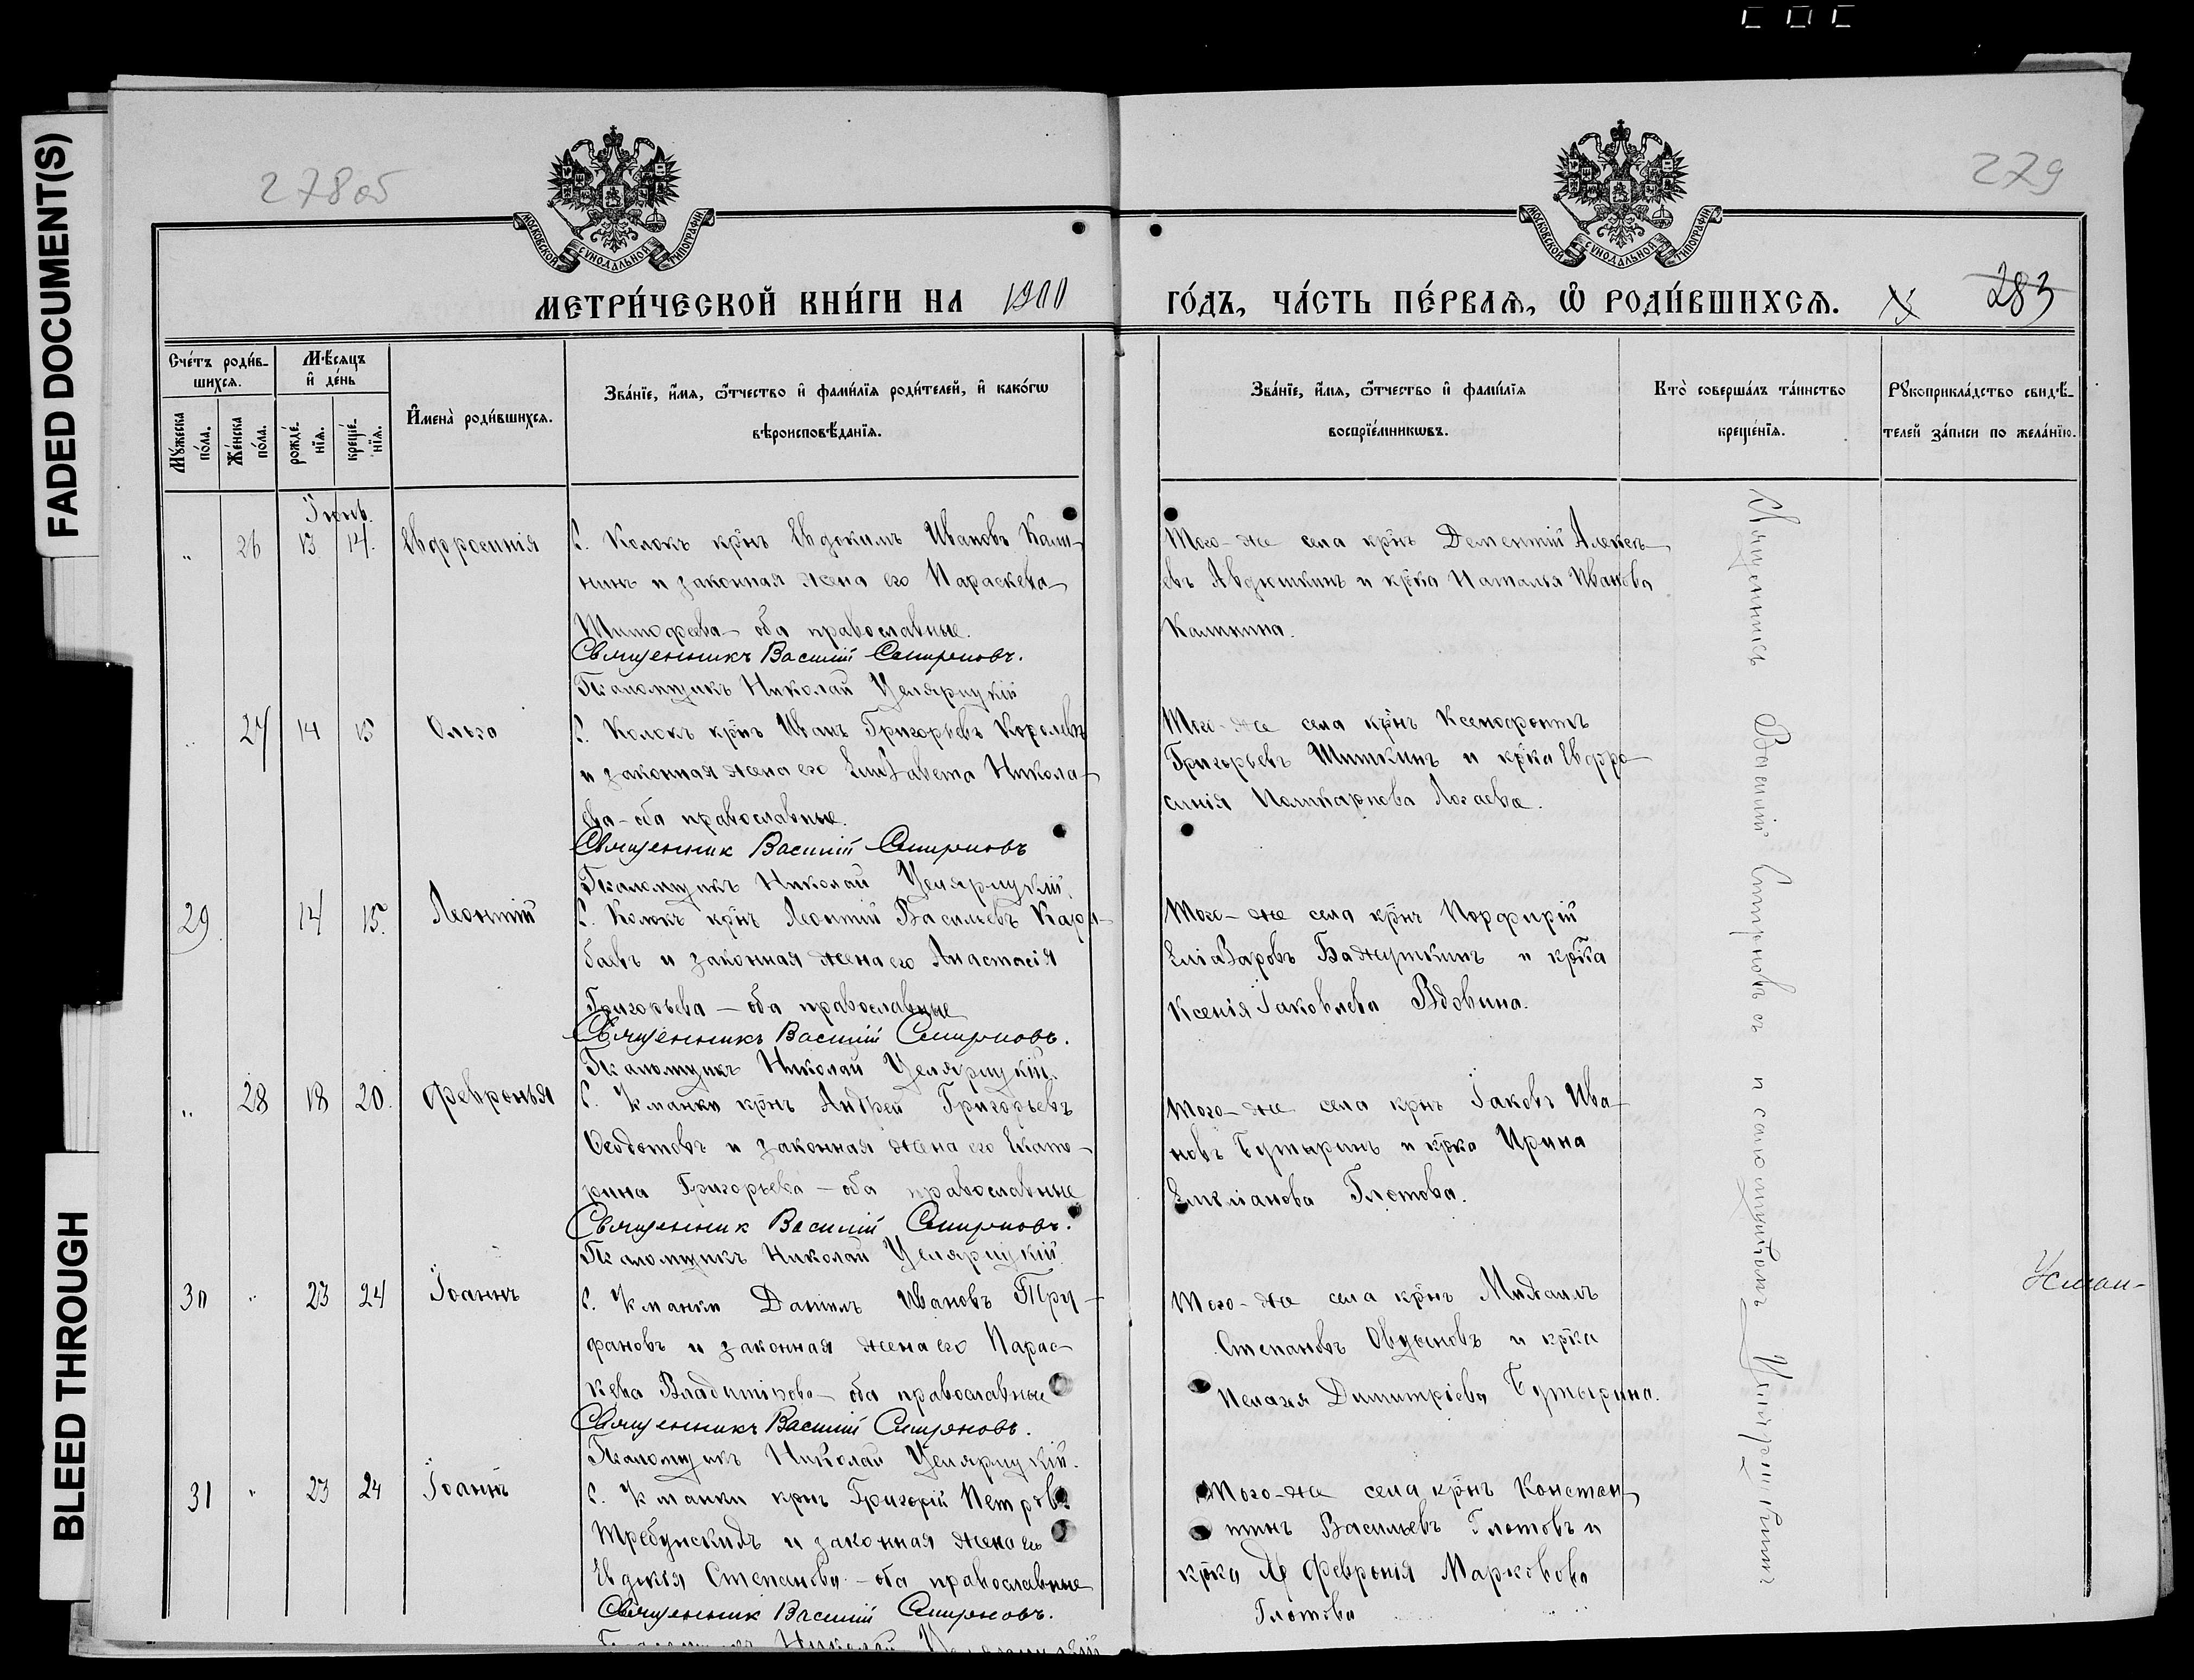 FADED DOCUMENT(S)
BLEED THROUGH
278 об
279
МОСКОВСКОЙ СУНОДАЛЬНОЙ ТИПОГРАФІИ
МОСКОВСКОЙ СУНОДАЛЬНОЙ ТИПОГРАФІИ
МЕТРИ́ЧЕСКОЙ КНИ́ГИ НА 1900
ГО́ДЪ, ЧА́СТЬ ПЕ́РВАѦ, Ѿ РОДИ́ВШИХСѦ.
283
Сче́тъ роди́в-
шихсѧ.
Мѣ́сѧцъ
и҆ де́нь
Мꙋ́жеска
по́ла.
Же́нска
по́ла.
рожде́-
нїѧ.
креще́-
нїѧ.
И҆мена̀ роди́вшихсѧ.
Зва́нїе, и҆́мѧ, ѻ҆́тчество и҆ фами́лїѧ роди́телей, и҆ како́гѡ
вѣроисповѣ́данїѧ.
Зва́нїе, и҆́мѧ, ѻ҆́тчество и҆ фами́лїѧ
воспрїе́мникѡвъ.
Кто̀ соверша́лъ та́инство
креще́нїѧ.
Рꙋкоприкла́дство свидѣ́-
телей за́писи по жела́нїю.
Іюнь.
" 26 13 14. Евфросинія
С. Колокъ крнъ Евдокимъ Ивановъ Кали-
нинъ и законная жена его Параскева
Тимофеева - оба православные.
Священникъ Василій Смирновъ.
Псаломщикъ Николай
Того-же села крнъ Дементій Алексѣ-
евъ Авдюшкинъ и крка Наталья Иванова
Калинина.
" 27 14 15 Ольга
С. Колокъ крнъ Иванъ Григорьевъ Королевъ
и законная жена его Елизавета Никола-
ева - оба православные.
Священник Василій Смирновъ
Псаломщикъ Николай
Того-же села крнъ Ксенофонтъ
Григорьевъ Шишкинъ и крка Евфро-
синія Поликарпова Логаева.
29 14 15. Леонтій
С. Колокъ крнъ Леонтій Васильевъ Кара-
баевъ и законная жена его Анастасія
Григорьева - оба православные
Священникъ Василій Смирновъ.
Псаломщикъ Николай
Того-же села крнъ Порфирій
Еліазаровъ и крка
Ксенія Іаковлева Вдовина.
" 28 18 20. Февронья
С. Кманки крнъ Андрей Григорьевъ
Ѳеодотовъ и законная жена его Екате-
рина Григорьева - оба православные
Священник Василій Смирновъ.
Псаломщикъ Николай
Того-же села крнъ Іаковъ Ива-
новъ Бутыринъ и крка Ирина
Емиліанова Глотова.
30 " 23 24 Іоаннъ
С. Кманки Даніилъ Ивановъ Тру-
фановъ и законная жена его Парас-
кева Владимірова - оба православные
Священникъ Василій Смирновъ.
Псаломщикъ Николай
Того-же села крнъ Михаилъ
Степановъ и крка
Пелагея Димитріева Бутырина.
31 " 23 24 Іоаннъ
С. Кманки крнъ Григорій Петровъ
Требунскихъ и законная жена его
Евдокія Степанова - оба православные
Священник Василій Смирновъ.
Того-же села крнъ Констан-
тинъ Васильевъ Глотовъ и
крка Февронія Марковова
Глотова
Священникъ Василій Смирновъ съ псаломщикомъ